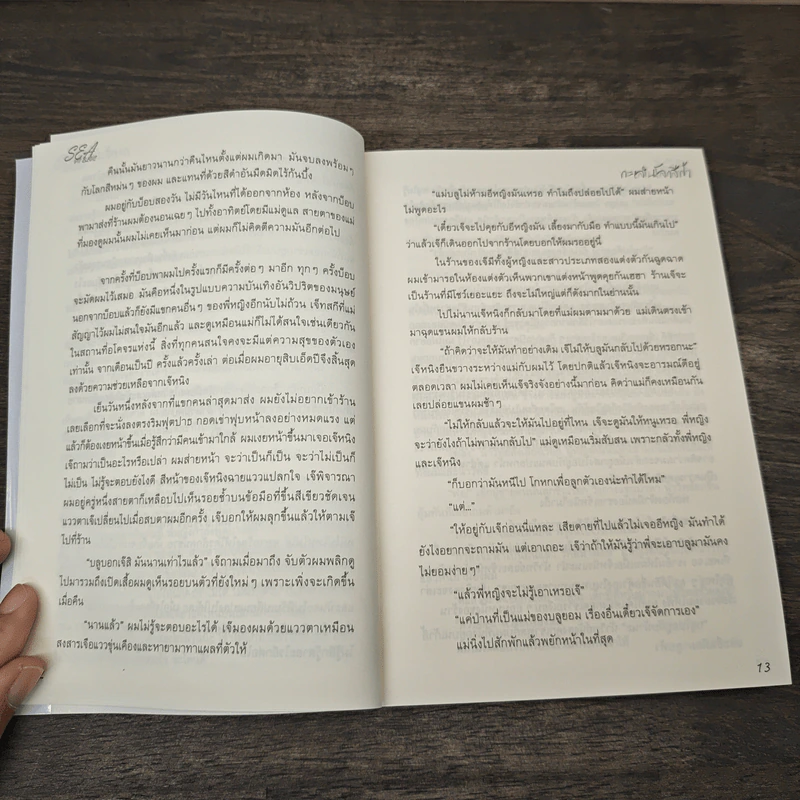 SEA
คืนนั้นมันยาวนานกว่าคืนไหนตั้งแต่ผมเกิดมา มันจบลงพร้อมๆ
กับโลกสีหม่นๆ ของผม และแทนที่ด้วยสีดำอันมืดมิดไร้กันบึ้ง
ผมอยู่กับบ็อบสองวัน ไม่มีวันไหนที่ได้ออกจากห้อง หลังจากบ็อบ
พามาส่งที่ร้านผมต้องนอนเฉยๆ ไปทั้งอาทิตย์โดยมีแม่ดูแล สายตาของแม่
ที่มองดูผมนั้นผมไม่เคยเห็นมาก่อน แต่ผมก็ไม่คิดตีความมันอีกต่อไป
จากครั้งที่บ็อบพาผมไปครั้งแรกก็มีครั้งต่อๆ มาอีก ทุกๆ ครั้งบ็อบ
จะมัดผมไว้เสมอ มันคือหนึ่งในรูปแบบความบันเทิงอันวิปริตของมนุษย์
นอกจากบ็อบแล้วก็ยังมีแขกคนอื่นๆ ของพี่หญิงอีกนับไม่ถ้วน เจ็ทสกีที่แม่
สัญญาไว้ผมไม่สนใจมันอีกแล้ว และดูเหมือนแม่ก็ไม่ได้สนใจเช่นเดียวกัน
ในสถานที่อโคจรแห่งนี้ สิ่งที่ทุกคนสนใจคงจะมีแต่ความสุขของตัวเอง
เท่านั้น จากเดือนเป็นปี ครั้งแล้วครั้งเล่า ต่อเมื่อผมอายุสิบเอ็ดปีจึงสิ้นสุด
ลงด้วยความช่วยเหลือจากเจ๊หนิง
เย็นวันหนึ่งหลังจากที่แขกคนล่าสุดมาส่ง ผมยังไม่อยากเข้าร้าน
เลยเลือกที่จะนั่งลงตรงริมฟุตปาธ กอดเข่าฟุบหน้าลงอย่างหมดแรง แต่
แล้วก็ต้องเงยหน้าขึ้นเมื่อรู้สึกว่ามีคนเข้ามาใกล้ ผมเงยหน้าขึ้นมาเจอเจ๊หนิง
เจ๊ถามว่าเป็นอะไรหรือเปล่า ผมส่ายหน้า จะว่าเป็นก็เป็น จะว่าไม่เป็นก็
ไม่เป็น ไม่รู้จะตอบยังไงดี สีหน้าของเจ๊หนิงฉายแววแปลกใจ เจ๊พิจารณา
ผมอยู่ครู่หนึ่งสายตาก็เหลือบไปเห็นรอยช้ำบนข้อมือที่ขึ้นสีเขียวชัดเจน
แววตาเจ๊เปลี่ยนไปเมื่อสบตาผมอีกครั้ง เจ๊บอกให้ผมลุกขึ้นแล้วให้ตามเจ๊
ไปที่ร้าน
"บลูบอกเจ๊สิ มันนานเท่าไรแล้ว" เจ๊ถามเมื่อมาถึง จับตัวผมพลิกดู
ไปมารวมถึงเปิดเสื้อผมดูเห็นรอยบนตัวที่ยังใหม่ๆ เพราะเพิ่งจะเกิดขึ้น
เมื่อคืน
"นานแล้ว" ผมไม่รู้จะตอบอะไรได้ เจ๊มองผมด้วยแววตาเหมือน
สงสารเจือแววขุ่นเคืองและหายามาทาแผลที่ตัวให้
"แม่บลูไม่ห้ามอีหญิงมันเหรอ ทำไมถึงปล่อยไปได้" ผมส่ายหน้า
ไม่พูดอะไร
"เดี๋ยวเจ๊จะไปคุยกับอีหญิงมัน เลี้ยงมากับมือ ทำแบบนี้มันเกินไป"
ว่าแล้วเจ๊ก็เดินออกไปจากร้านโดยบอกให้ผมรออยู่นี่
ในร้านของเจ๊มีทั้งผู้หญิงและสาวประเภทสองแต่งตัวกันฉูดฉาด
ผมเข้ามารอในห้องแต่งตัวเห็นพวกเขาแต่งหน้าพูดคุยกันเฮฮา ร้านเจ๊จะ
เป็นร้านที่มีโชว์เยอะแยะ ถึงจะไม่ใหญ่แต่ก็ดังมากในย่านนั้น
ไปไม่นานเจ๊หนิงก็กลับมาโดยที่แม่ผมตามมาด้วย แม่เดินตรงเข้า
มาฉุดแขนผมให้กลับร้าน
"ถ้าคิดว่าจะให้มันทำอย่างเดิม เจ๊ไม่ให้บลูมันกลับไปด้วยหรอกนะ"
เจ๊หนิงยืนขวางระหว่างแม่กับผมไว้ โดยปกติแล้วเจ๊หนิงจะอารมณ์ดีอยู่
ตลอดเวลา ผมไม่เคยเห็นเจ๊จริงจังอย่างนี้มาก่อน คิดว่าแม่ก็คงเหมือนกัน
เลยปล่อยแขนผมช้าๆ
"ไม่ให้กลับแล้วจะให้มันไปอยู่ที่ไหน เจ๊จะดูมันให้หนูเหรอ พี่หญิง
จะว่ายังไงถ้าไม่พามันกลับไป" แม่ดูเหมือนเริ่มสับสน เพราะกลัวทั้งพี่หญิง
และเจ๊หนิง
"ก็บอกว่ามันหนีไป โกหกเพื่อลูกตัวเองน่ะทำได้ไหม"
"แต่..."
"ให้อยู่กับเจ๊ก่อนนี่แหละ เสียดายที่ไปแล้วไม่เจออีหญิง มันทำได้
ยังไงอยากจะถามมัน แต่เอาเถอะ เจ๊ว่าถ้าให้มันรู้ว่าพี่จะเอาบลูมามันคง
ไม่ยอมง่ายๆ"
"แล้วพี่หญิงจะไม่รู้เอาเหรอเจ๊"
"แค่ป่านที่เป็นแม่ของบลูยอม เรื่องอื่นเดี๋ยวเจ๊จัดการเอง"
แม่นิ่งไปสักพักแล้วพยักหน้าในที่สุด
13